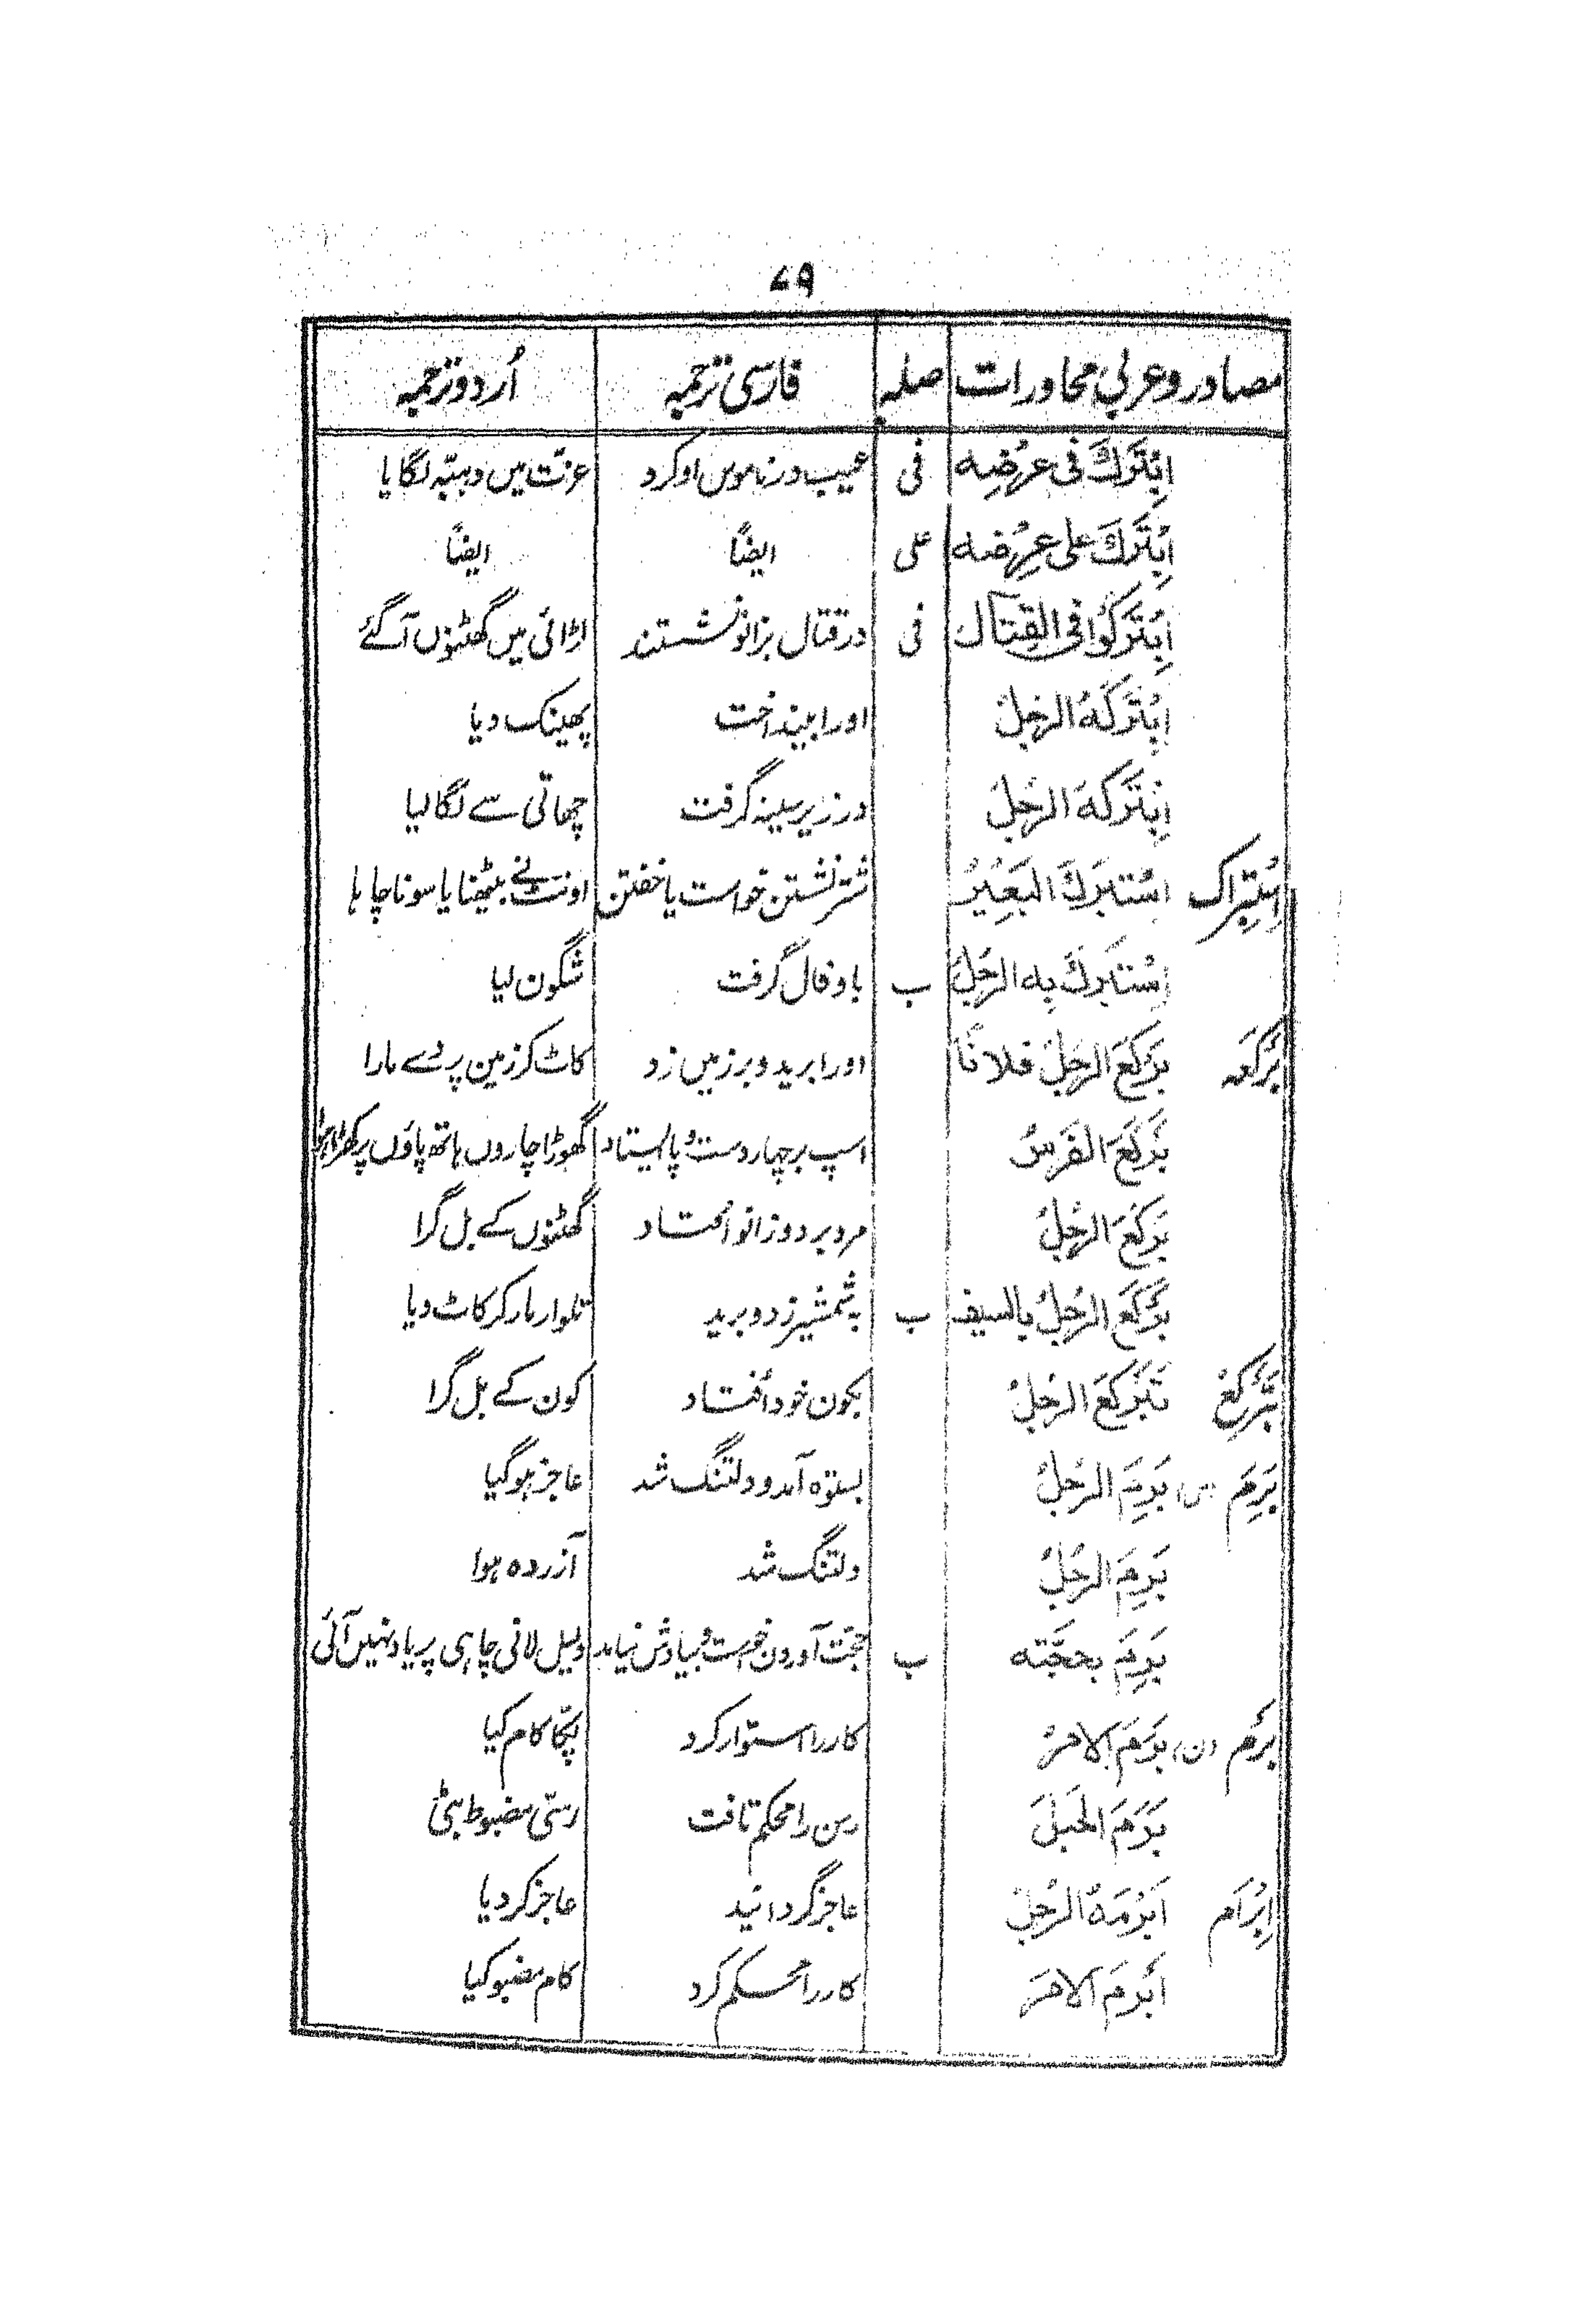 ۷۹
مصادر و عربی محاورات صلہ فارسی ترجمہ اُردو ترجمہ
اِبْتَرَكَ فی عِرْضِه فی عیب در ناموس او کرد عزّت میں دہبّہ لگایا
اِبْتَرَكَ علی عِرْضه علی ایضًا ایضًا
اِبْتَرَكُوا فی القِتَال فی در قتال بزانو نشستند لڑائی میں گھٹنوں آ گئے
اِبْتَرَكَهُ الرجلُ او را بینداخت پھینک دیا
اِبْتَرَكَهَ الرَجلُ در زیر سینہ گرفت چھاتی سے لگا لیا
اِسْتِبْراک اسْتَبرَكَ البَعِيْرُ شتر نشستن خواست یا خفتن اونٹ نے بیٹھنا یا سونا چاہا
اِسْتَبرَكَ بِه الرَجُلُ ب باو فال گرفت شگون لیا
بَرْکَعَہ بَرْكَعَ الرَجلُ فلانًا او را برید و بر زمیں زد کاٹ کر زمین پر دے مارا
بَرْكَعَ الفَرَسُ اسپ بر چہار دست و پا ایستاد گھوڑا چاروں ہاتھ پاؤں پر کھڑا ہوا
بَرْكَعَ الرَجُلُ مرد بر دو زانو افتاد گھٹنوں کے بل گرا
بَرْكَعَ الرَجُلُ بالسیف ب بہ شمشیر زد و برید تلوار مار کر کاٹ دیا
تَبَرْکُعْ تَبَرْكَعَ الرَجُلُ بکون خود اُفتاد کون کے بل گرا
بَرَم (س) بَرِمَ الرَجُلُ بستوہ آمد و دلتنگ شد عاجز ہو گیا
بَرِمَ الرَجُلُ دلتنگ شد آزردہ ہوا
بَرِمَ بحجّته ب حجّت آوردن خواست و بیادش نیامد دلیل لانی چاہی پر یاد نہیں آئی
بَرْم (ن) بَرَمَ الامرَ کار را استوار کرد پکّا کام کیا
بَرَمَ الحَبلَ رسن را محکم تافت رسّی مضبوط بٹی
اِبْرَام اَبْرَمَهُ الرَجُلُ عاجز گردانید عاجز کر دیا
اَبْرَمَ الامرَ کار را محکم کرد کام مضبو کیا